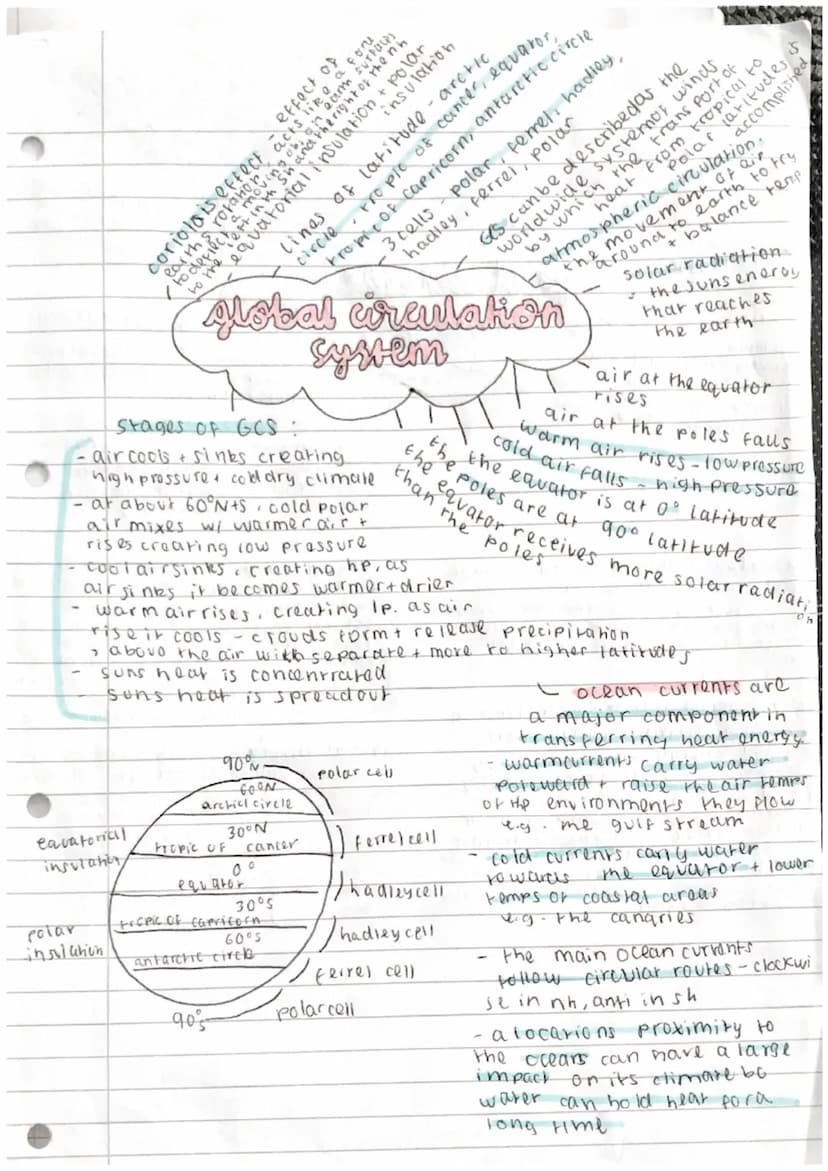 coriolois effect - effect of
earth's rotation, acts like a force
to deflect a moving obj. on earth surface
to the left in th sh and the right of the nh
equatorial insulation + polar
insulation
lines of latitude - arctic
circle, tropic of cancer, equator,
tropic of capricorn, antarctic circle
3 cells - polar, ferrel, hadley,
hadley, ferrel, polar
GCS can be described as the
worldwide system of winds
by which the transport of
heat from tropical to
polar latitudes is
accomplished
atmospheric circulation -
the movement of air
around to earth to try
+ balance temp
solar radiation
- the suns energy
that reaches
the earth
global circulation
system
air at the equator
rises
air at the poles falls
warm air rises - low pressure
cold air falls - high pressure
the the equator is at 0° latitude
the poles are at 90° latitude
the equator receives more solar radiation
than the poles
stages of GCS :
- air cools + sinks creating
high pressure + cold dry climate
- at about 60°N+S, cold polar
air mixes w/ warmer air +
rises creating low pressure
- cool air sinks, creating hp, as
air sinks it becomes warmer + drier
- warm air rises, creating lp. as air
rise it cools - clouds form + release precipitation
, above the air with separate + move to higher latitudes
- suns heat is concentrated
- suns heat is spread out
ocean currents are
a major component in
transferring heat energy
- warm currents carry water
poleward + raise the air temps
of the environments they flow
e.g. the gulf stream
- cold currents carry water
towards the equator + lower
temps of coastal areas
e.g. the canaries
- the main ocean currents
follow circular routes - clockwi
se in nh, anti in sh
- a locations proximity to
the oceans can have a large
impact on its climate bc
water can hold heat for a
long time
90°N
polar cell
60°N
arctic circle
30°N
tropic of cancer
ferrel cell
equatorial
insulation
0°
equator
hadley cell
30°S
tropic of capricorn
hadley cell
polar
insulation
60°S
antarctic circle
ferrel cell
90°S
polar cell